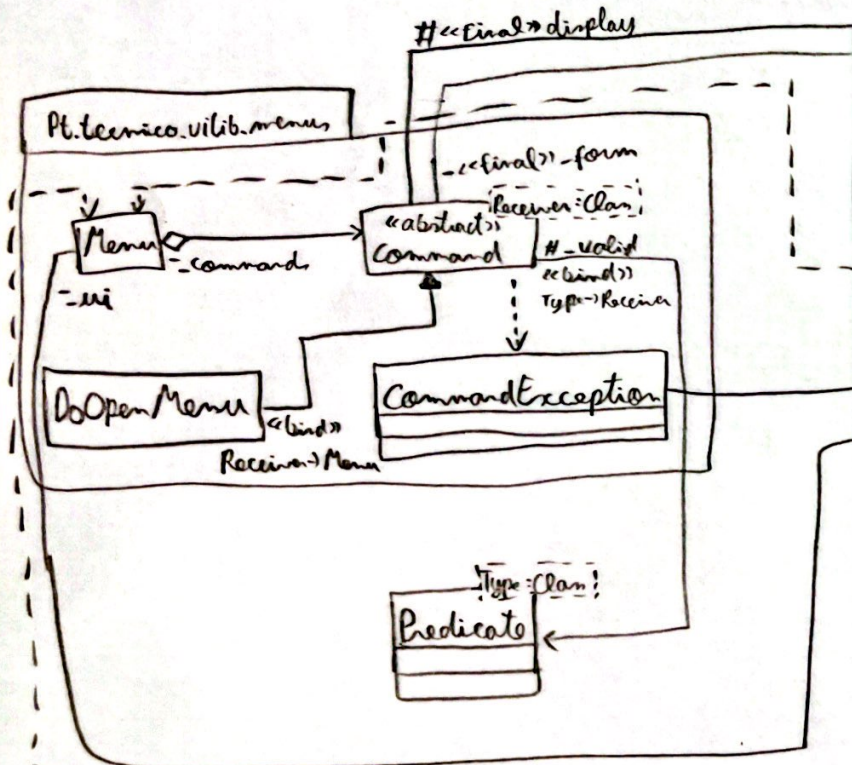 # «final» display
Pt.tecnico.uilib.menus
- «final» _form
Receiver:Class
Menu
«abstract»
Command
-_commands
#_valid
«bind»
Type->Receiver
-_ui
DoOpenMenu
«bind»
Receiver->Menu
CommandException
Type:Class
Predicate